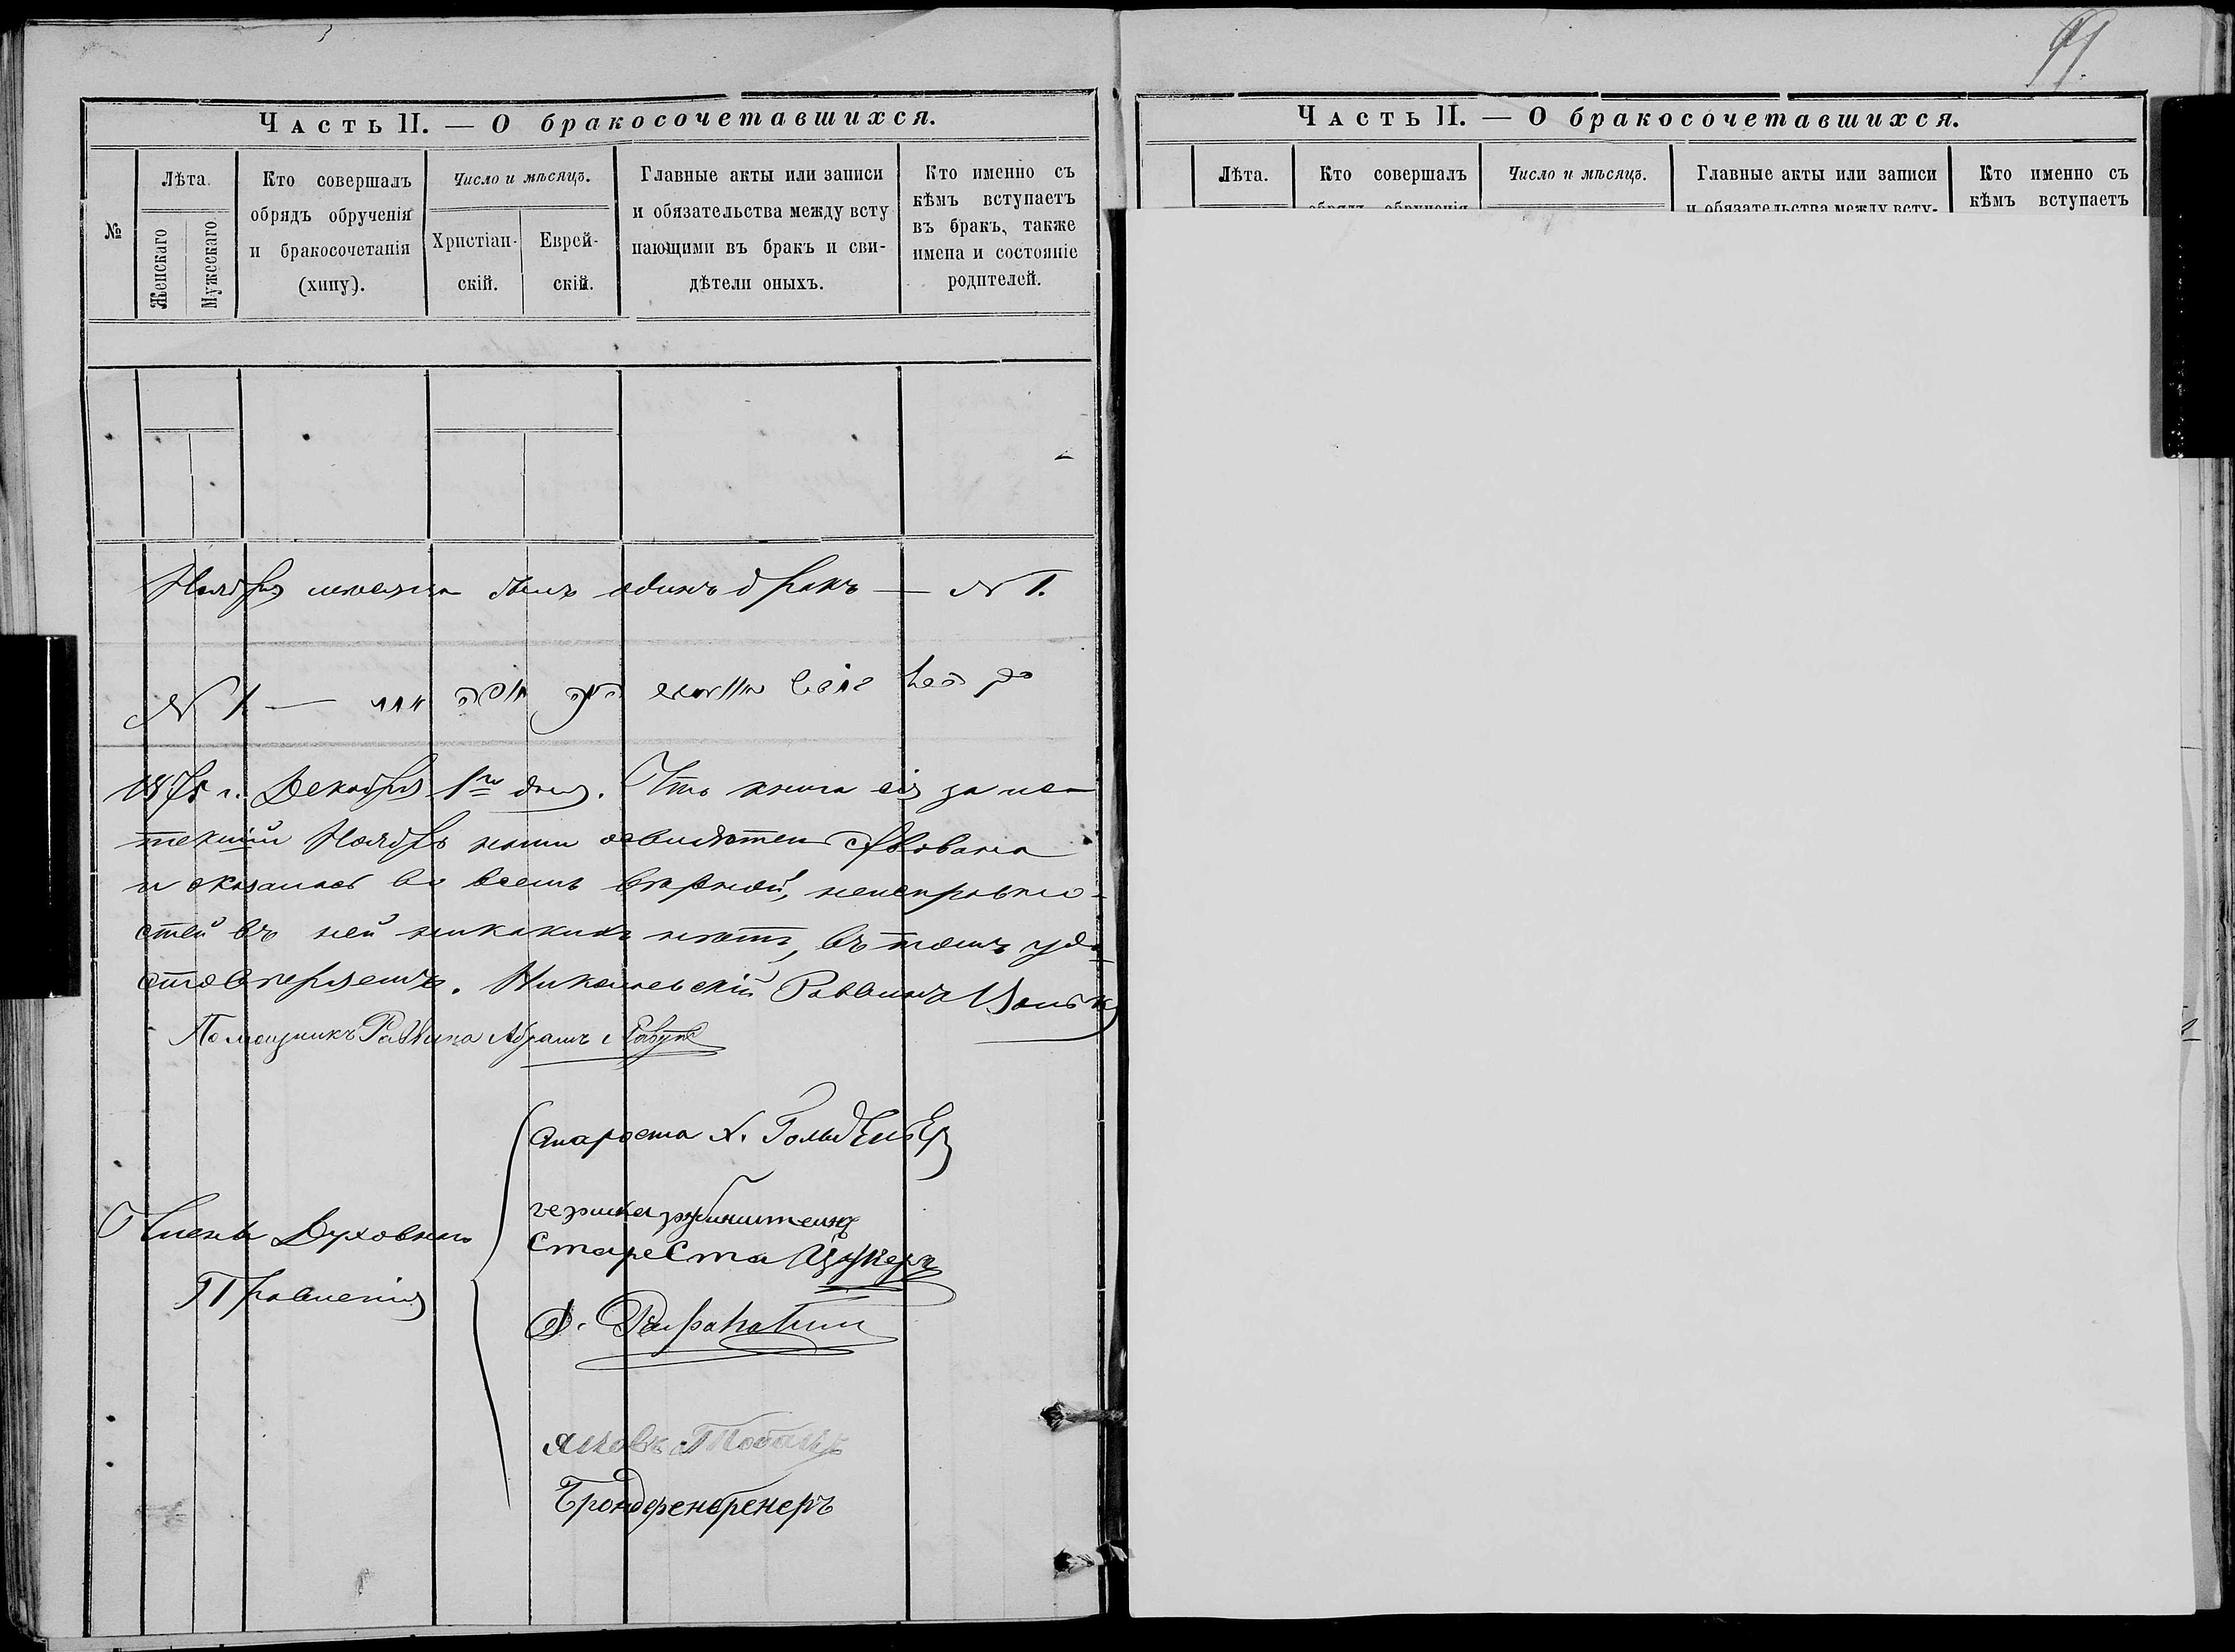 91
Часть II. — О бракосочетавшихся.
№
Лѣта.
Женскаго
Мужескаго
Кто совершалъ
обрядъ обрученія
и бракосочетанія
(хипу).
Число и мѣсяцъ.
Христіан-
скій.
Еврей-
скій.
Главные акты или записи
и обязательства между всту
пающими въ бракъ и сви-
дѣтели оныхъ.
Кто именно съ
кѣмъ вступаетъ
въ бракъ, также
имена и состояніе
родителей.
Ноября мѣсяца былъ одинъ бракъ — N 1.
N 1 —
187 г. Декабря 1го дня. Что книга сія за ис-
текшій Ноябрь нами освидѣтельствована
и оказалась во всемъ вѣрной, неисправно-
стей въ ней никакихъ нѣтъ, въ томъ удо-
стовѣряемъ. Николаевскій Раввинъ
Помощникъ Раввина Абрамъ
Члены Духовнаго
Правленія
Староста Х. Гольденбер
гершка рубинштейнъ
Староста Цукеръ
Яковъ
Часть II. — О бракосочетавшихся.
Лѣта.
Кто совершалъ
обрядъ обрученія
Число и мѣсяцъ.
Главные акты или записи
и обязательства между всту-
Кто именно съ
кѣмъ вступаетъ